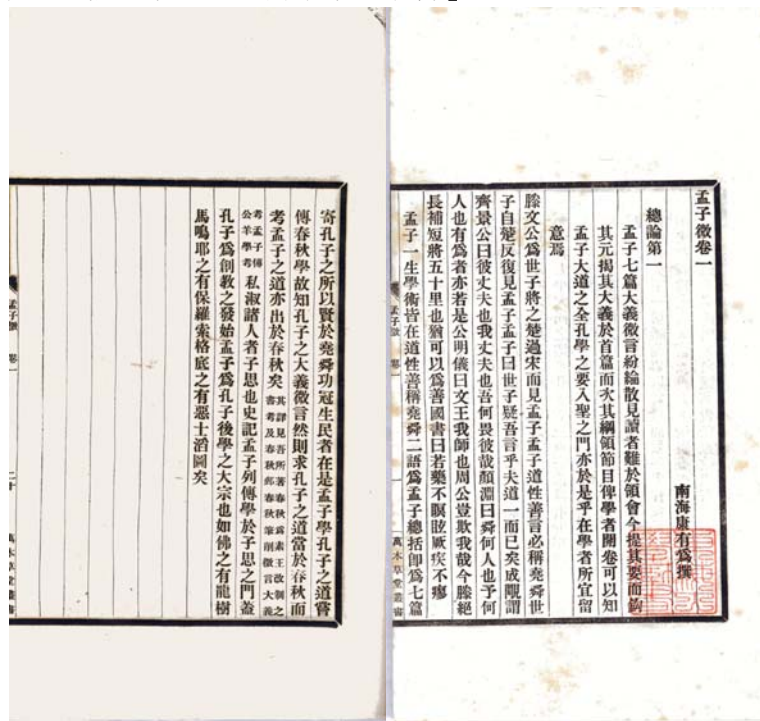 孟子微卷一
南海康有爲撰
總論第一
孟子七篇大義微言紛綸散見讀者難於領會今提其要而鉤
其元揭其大義於首篇而次其綱領節目俾學者開卷可以知
孟子大道之全孔學之要入聖之門亦於是乎在學者所宜留
意焉
滕文公爲世子將之楚過宋而見孟子孟子道性善言必稱堯舜世
子自楚反復見孟子孟子曰世子疑吾言乎夫道一而已矣成覵謂
齊景公曰彼丈夫也我丈夫也吾何畏彼哉顏淵曰舜何人也予何
人也有爲者亦若是公明儀曰文王我師也周公豈欺我哉今滕絕
長補短將五十里也猶可以爲善國書曰若藥不瞑眩厥疾不瘳
孟子一生學術皆在道性善稱堯舜二語爲孟子總括即爲七篇
孟子微 卷一
一
萬木草堂叢書
寄孔子之所以賢於堯舜功冠生民者在是孟子學孔子之道嘗
傳春秋學故知孔子之大義微言然則求孔子之道當於春秋而
考孟子之道亦出於春秋矣其詳見吾所著春秋爲素王改制之
書考及春秋郵春秋筆削微言大義
考孟子傳
公羊學考私淑諸人者子思也史記孟子列傳學於子思之門蓋
孔子爲創敎之發始孟子爲孔子後學之大宗也如佛之有龍樹
馬鳴耶之有保羅索格底之有惡士滔圖矣
孟子微 卷一
二十
萬木草堂叢書